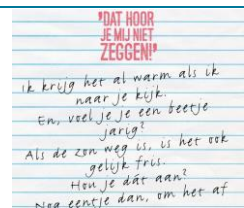 'DAT HOOR
JE MIJ NIET
ZEGGEN!'
Ik krijg het al warm als ik
naar je kijk.
En, voel je je een beetje
jarig?
Als de zon weg is, is het ook
gelijk fris.
Hou je dát aan?
Nog eentje dan, om het af